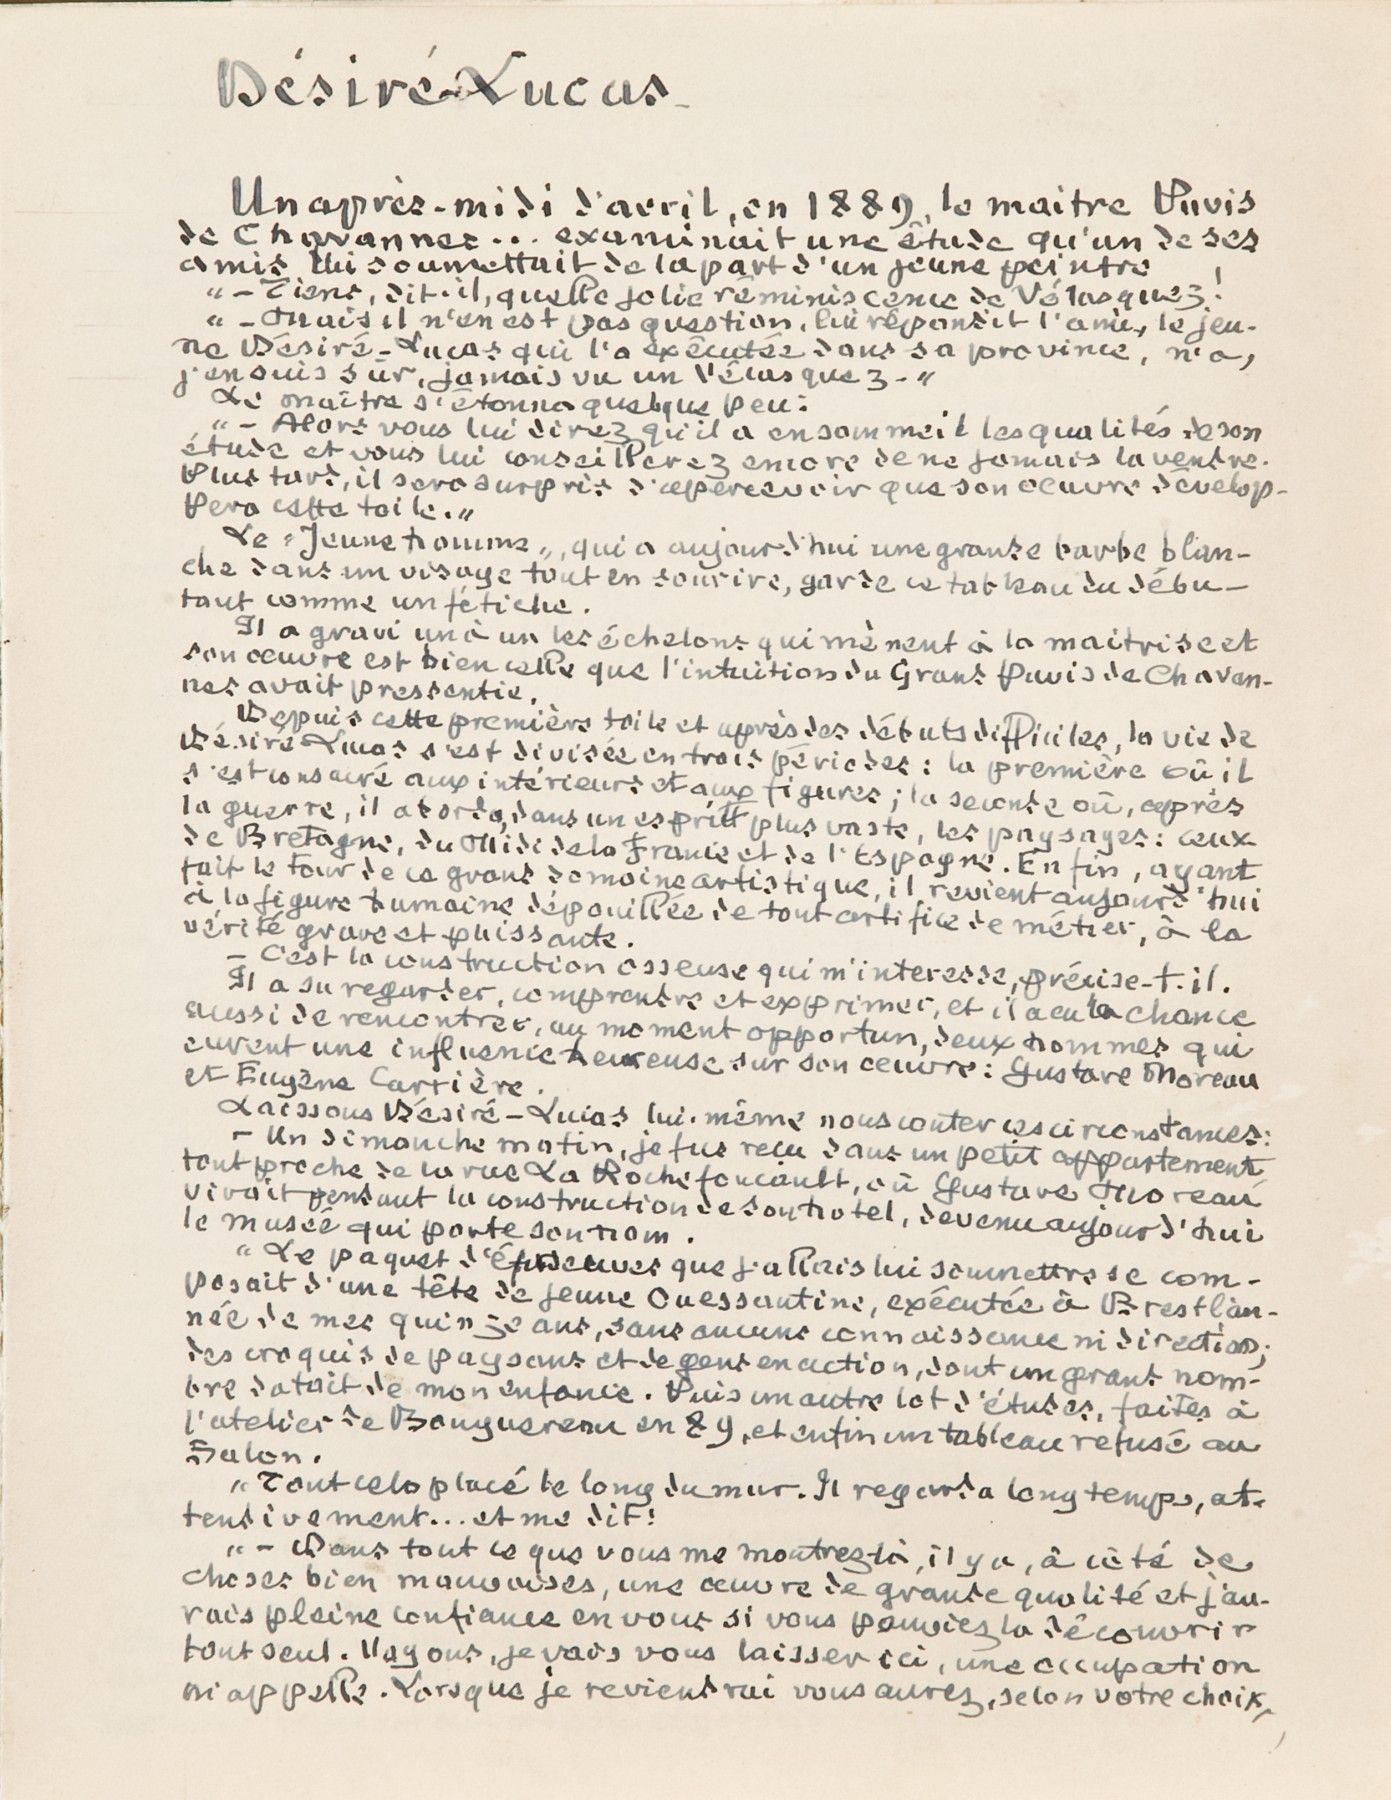 Désiré-Lucas_
Un après-midi d'avril, en 1889, le maitre Puvis
de Chavannes... examinait une étude qu'un de ses
amis lui soumettait de la part d'un jeune peintre
"– Tiens, dit-il, quelle jolie réminiscence de Vélasquez!
"– Mais il n'en est pas question, lui répondit l'ami, le jeu-
ne Désiré-Lucas qui l'a exécutée dans sa province, n'a,
j'en suis sûr, jamais vu un Vélasquez."
Le maître s'étonna quelque peu:
"– Alors vous lui direz qu'il a en sommeil les qualités de son
étude et vous lui conseillerez encore de ne jamais la vendre.
Plus tard, il sera surpris d'apercevoir que son oeuvre dévelop-
pera cette toile."
Le "Jeune homme", qui a aujourd'hui une grande barbe blan-
che dans un visage tout en sourire, garde ce tableau du débu-
tant comme un fétiche.
Il a gravi un à un les échelons qui mènent à la maitrise et
son oeuvre est bien celle que l'intuition du Grand Puvis de Chavan-
nes avait pressentie.
Depuis cette première toile et après des débuts difficiles, la vie de
Désiré-Lucas s'est divisée en trois périodes: la première où il
s'est consacré aux intérieurs et aux figures; la seconde où, après
la guerre, il aborda, dans un esprit plus vaste, les paysages: ceux
de Bretagne, du Midi de la France et de l'Espagne. Enfin, ayant
fait le tour de ce grand domaine artistique, il revient aujourd'hui
à la figure humaine dépouillée de tout artifice de métier, à la
vérité grave et puissante.
– C'est la construction osseuse qui m'interesse, précise-t-il.
Il a su regarder, comprendre et exprimer, et il a eu la chance
aussi de rencontrer, au moment opportun, deux hommes qui
eurent une influence heureuse sur son oeuvre: Gustave Moreau
et Eugène Carrière.
Laissons Désiré-Lucas lui-même nous conter ces circonstances:
– Un dimanche matin, je fus reçu dans un petit appartement
tout proche de la rue La Rochefoucault, où Gustave Moreau
vivait pendant la construction de son hotel, devenu aujourd'hui
le musée qui porte son nom.
"Le paquet d'épreuves que j'allais lui soumettre se com-
posait d'une tête de jeune Ouessantine, exécutée à Brest l'an-
née de mes quinze ans, sans aucune connaissance ni direction;
des croquis de paysans et de gens en action, dont un grand nom-
bre datait de mon enfance. Puis un autre lot d'études, faites à
l'atelier de Bouguereau en 89, et enfin un tableau refusé au
Salon.
"Tout cela placé le long du mur. Il regarda longtemps, at-
tentivement... et me dit:
"– Dans tout ce que vous me montrez là, il y a, à côté de
choses bien mauvaises, une oeuvre de grande qualité et j'au-
rais pleine confiance en vous si vous pouviez la découvrir
tout seul. Voyons, je vais vous laisser ici, une occupation
m'appelle. Lorsque je reviendrai vous aurez, selon votre choix,